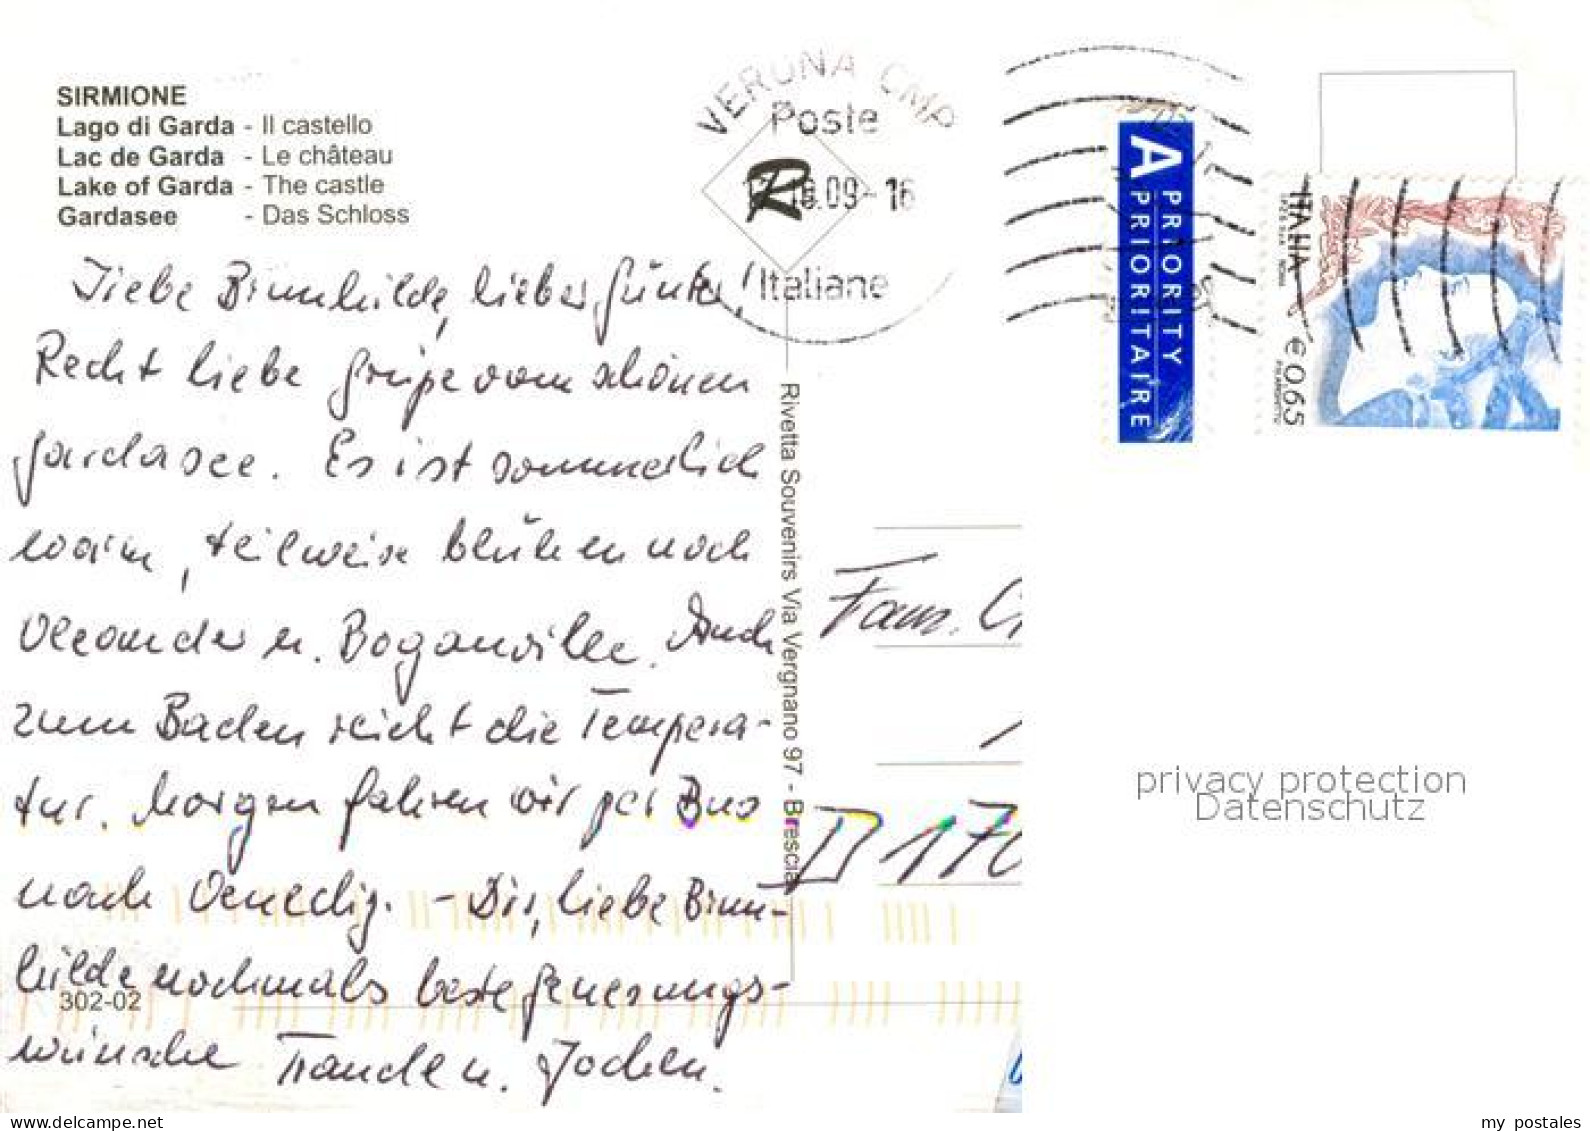 SIRMIONE
Lago di Garda - Il castello
Lac de Garda - Le château
Lake of Garda - The castle
Gardasee - Das Schloss
VERONA CMP
Poste
R
.09-16
Italiane
A PRIORITY
PRIORITAIRE
ITALIA
€ 0,65
Liebe Brunhilde, lieber Günter!
Recht liebe Grüße vom schönen
Gardasee. Es ist sommerlich
warm, teilweise blühen noch
Oleander u. Boganville. Auch
zum Baden reicht die Tempera-
tur. Morgen fahren wir per Bus
nach Venedig. - Dir, liebe Brun-
hilde nochmals beste Genesungs-
wünsche Traudl u. Jochen.
302-02
Rivetta Souvenirs Via Vergnano 97 - Brescia
Fam.
D 170
privacy protection
Datenschutz
my postales